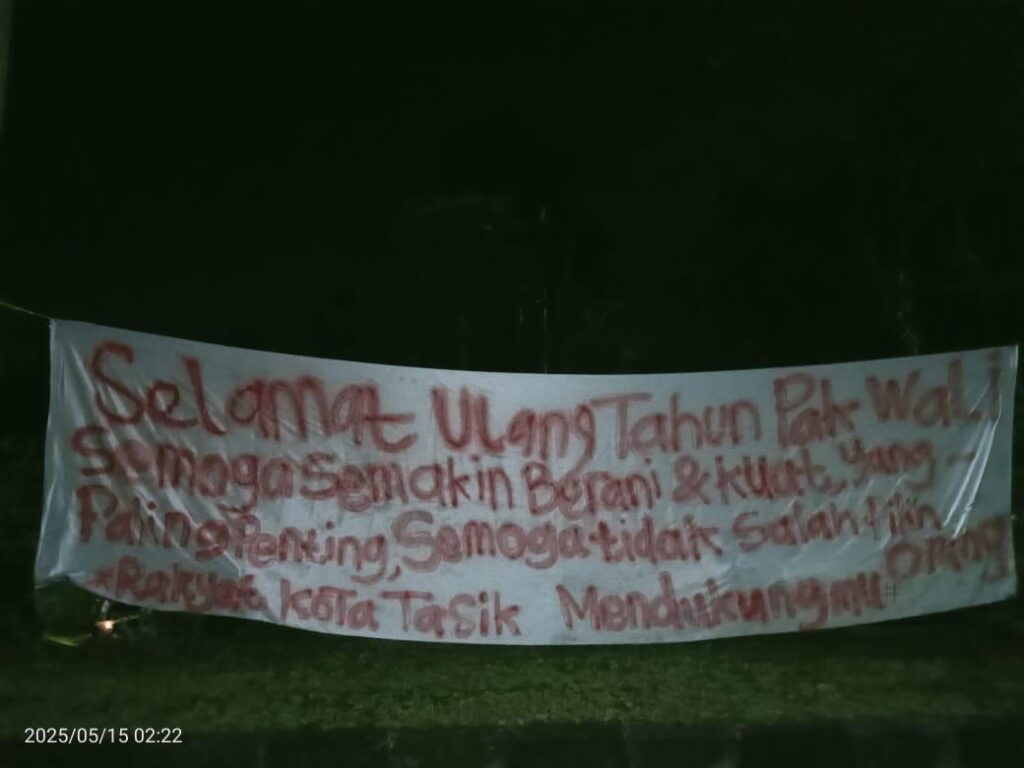 Selamat Ulang Tahun Pak Wali
Semoga Semakin Berani & Kuat, Yang -
Paling Penting, Semoga tidak Salah Pilih
Orang
#Rakyat Kota Tasik Mendukungmu#
2025/05/15 02:22